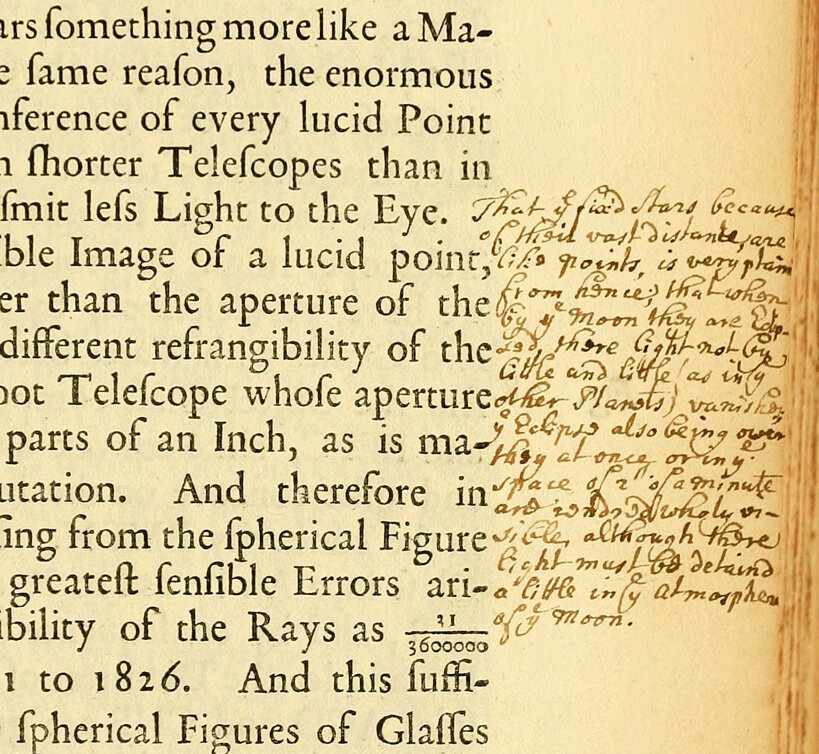 ars ſomething more like a Ma-
e ſame reaſon, the enormous
nference of every lucid Point
n ſhorter Teleſcopes than in
ſmit leſs Light to the Eye.
ible Image of a lucid point,
er than the aperture of the
different refrangibility of the
oot Teleſcope whoſe aperture
parts of an Inch, as is ma-
utation. And therefore in
ſing from the ſpherical Figure
greateſt ſenſible Errors ari-
ibility of the Rays as 31/3600000
1 to 1826. And this ſuffi-
ſpherical Figures of Glaſſes
That yͤ fixed stars because
of their vast distance, are
like points, is very plain
from hence; that when
by yͤ Moon they are Eclip-
sed, there light not by
little and little (as in yͤ
other Planets) vanishes;
yͤ Eclipse also being over
they at once, or in yͤ
space of 2" of a minute
are rendred wholy vi-
sible, although there
light must be detaind
a little in yͤ Atmosphere
of yͤ Moon.